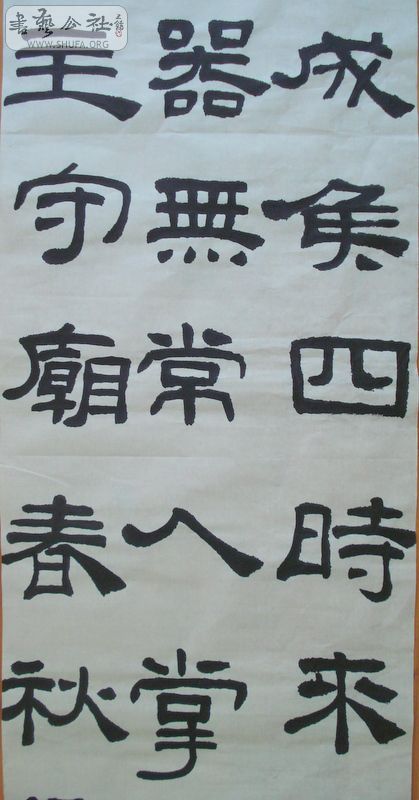 成矦四時來
器無常人掌
主守廟春秋
書藝公社
WWW.SHUFA.ORG